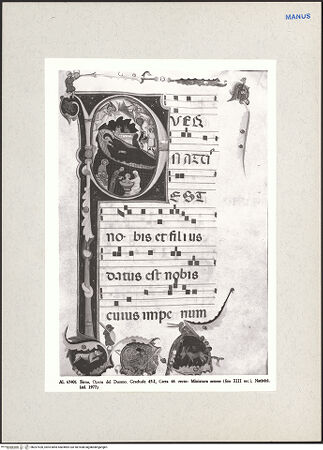 MANUS
P
VER
NATU
EST
no bis et filius
datus est nobis
cuius impe num
AL 43401 Siena, Opera del Duomo, Graduale 45.I, Carta 46 recto: Miniatura senese (fine XIII sec.): Natività.
(ed. 1977)